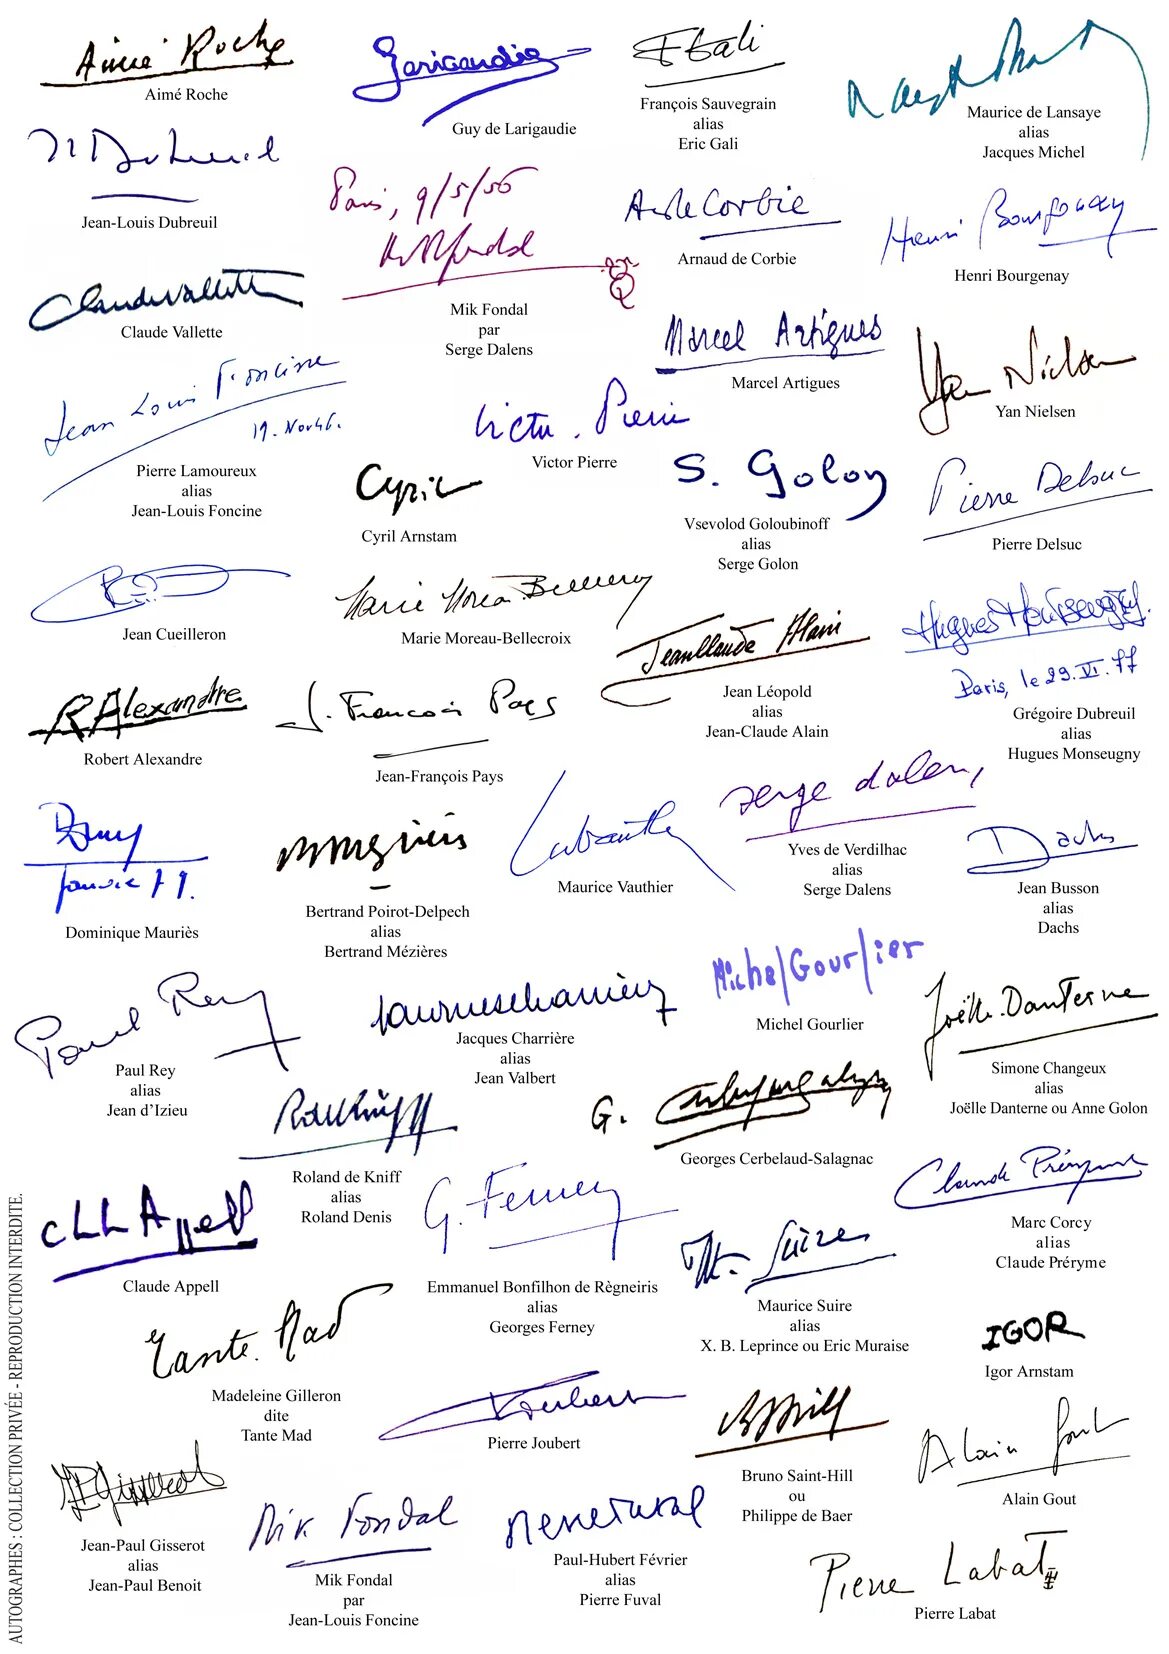 Aimé Roche
Aimé Roche
Larigaudie
Guy de Larigaudie
E Gali
François Sauvegrain
alias
Eric Gali
Maurice de Lansaye
alias
Jacques Michel
Jl Dubreuil
Jean-Louis Dubreuil
Paris, 9/5/56
Mik Fondal
Mik Fondal
par
Serge Dalens
A. de Corbie
Arnaud de Corbie
Henri Bourgenay
Henri Bourgenay
Claude Vallette
Claude Vallette
Marcel Artigues
Marcel Artigues
Yan Nielsen
Yan Nielsen
Jean Louis Foncine
Pierre Lamoureux
alias
Jean-Louis Foncine
Victor Pierre
Victor Pierre
Cyril
Cyril Arnstam
S. Golon
Vsevolod Goloubinoff
alias
Serge Golon
Pierre Delsuc
Pierre Delsuc
Jean Cueilleron
Marie Moreau-Bellecroix
Marie Moreau-Bellecroix
Jean Claude Alain
Jean Léopold
alias
Jean-Claude Alain
Hugues Monseugny
Paris, le 29.VI.77
Grégoire Dubreuil
alias
Hugues Monseugny
R Alexandre
Robert Alexandre
J. François Pays
Jean-François Pays
Serge Dalens
Yves de Verdilhac
alias
Serge Dalens
Dachs
Jean Busson
alias
Dachs
Domy
Janvier 79.
Dominique Mauriès
Bertrand Poirot-Delpech
alias
Bertrand Mézières
Maurice Vauthier
Paul Rey
Paul Rey
alias
Jean d’Izieu
Jacques Charrière
alias
Jean Valbert
Michel Gourlier
Michel Gourlier
Joëlle Danterne
Simone Changeux
alias
Joëlle Danterne ou Anne Golon
Roland de Kniff
alias
Roland Denis
G. Cerbelaud Salagnac
Georges Cerbelaud-Salagnac
Claude Préryme
Marc Corcy
alias
Claude Préryme
CLL Appell
Claude Appell
G. Ferney
Emmanuel Bonfilhon de Règneiris
alias
Georges Ferney
M. Suire
Maurice Suire
alias
X. B. Leprince ou Eric Muraise
IGOR
Igor Arnstam
Tante Mad
Madeleine Gilleron
dite
Tante Mad
Joubert
Pierre Joubert
Bruno Saint-Hill
ou
Philippe de Baer
Alain Gout
Alain Gout
JP Gisserot
Jean-Paul Gisserot
alias
Jean-Paul Benoit
Mik Fondal
Mik Fondal
par
Jean-Louis Foncine
Pierre Fuval
Paul-Hubert Février
alias
Pierre Fuval
Pierre Labat
Pierre Labat
AUTOGRAPHES : COLLECTION PRIVÉE - REPRODUCTION INTERDITE.